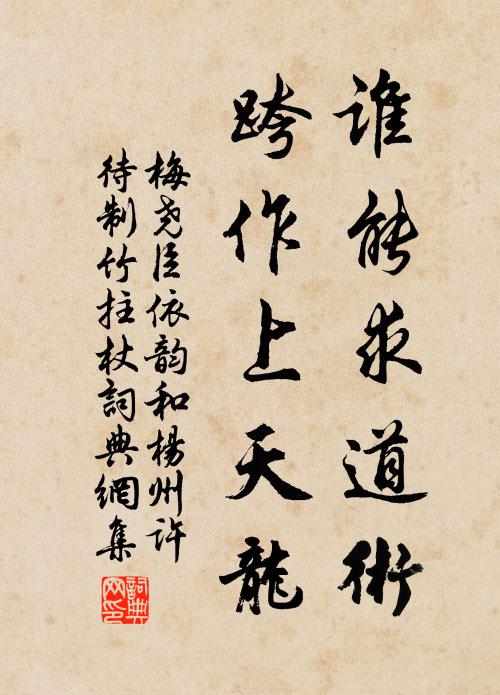 谁能求道術
跨作上天龍
梅尧臣依韵和楊州許
待制竹拄杖詞典網集
詞典
网印